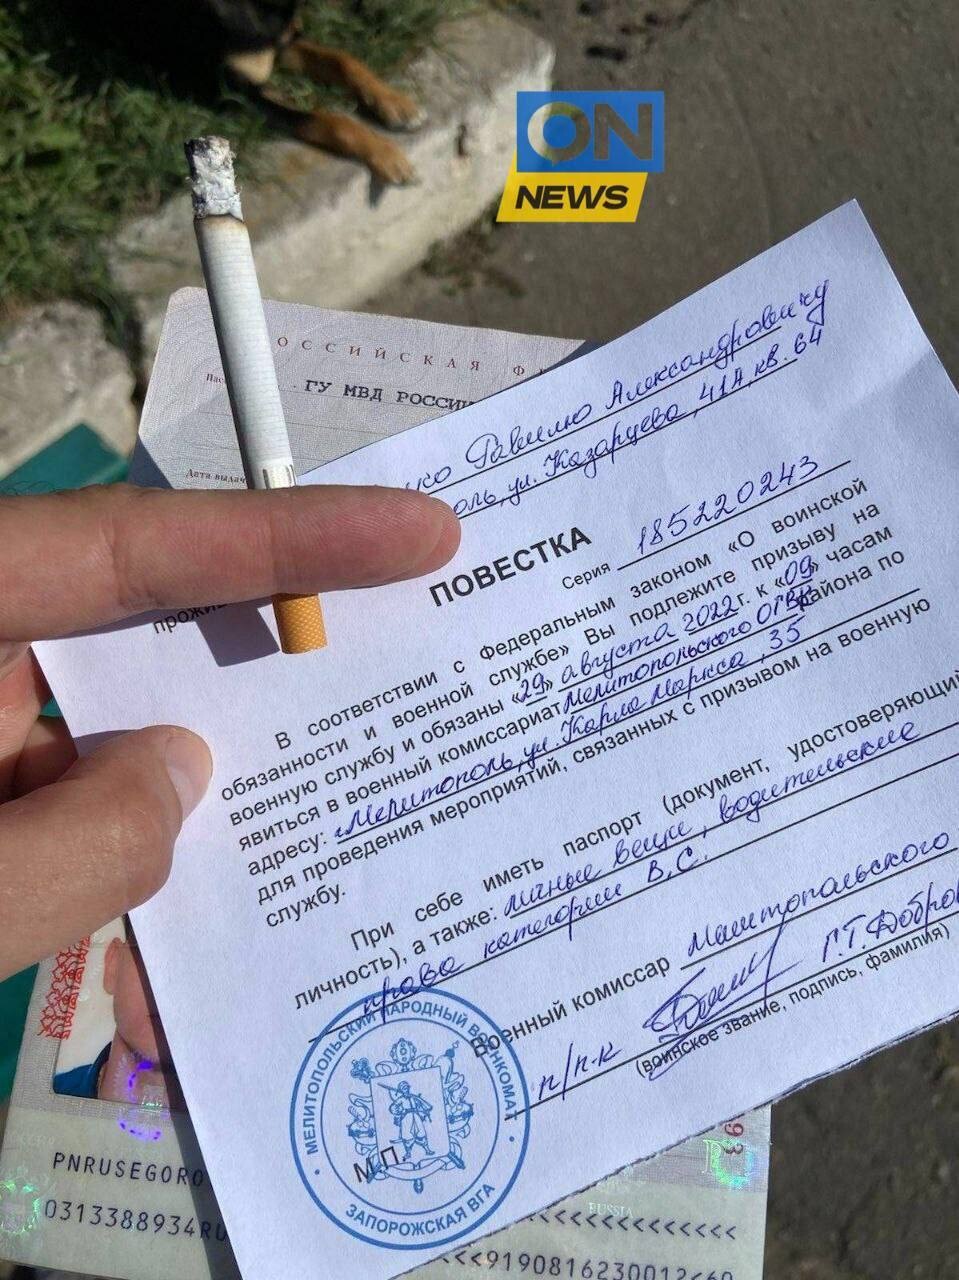 ON
NEWS
ОССИЙСКАЯ Ф
ГУ МВД РОССИИ
Дата выдач
ко Равилю Александровичу
оль, ул. Казарцева, 41А, кв. 64
прожив
ПОВЕСТКА
Серия 185220243
В соответствии с Федеральным законом «О воинской
обязанности и военной службе» Вы подлежите призыву на
военную службу и обязаны «29» августа 2022 г. к «09» часам
явиться в военный комиссариат Мелитопольского ОГВК района по
адресу: г. Мелитополь, ул. Карла Маркса, 35
для проведения мероприятий, связанных с призывом на военную
службу.
При себе иметь паспорт (документ, удостоверяющий
личность), а также: личные вещи, водительские
права категории В, С.
Военный комиссар Мелитопольского
п/п-к Г.Т. Добров
(воинское звание, подпись, фамилия)
М.П.
МЕЛИТОПОЛЬСКИЙ НАРОДНЫЙ ВОЕНКОМАТ
ЗАПОРОЖСКАЯ ВГА
993
RUSSIA
PNRUSEGORO
0313388934RU
<<<<<<<<<<<<<<
<<9190816230012<60